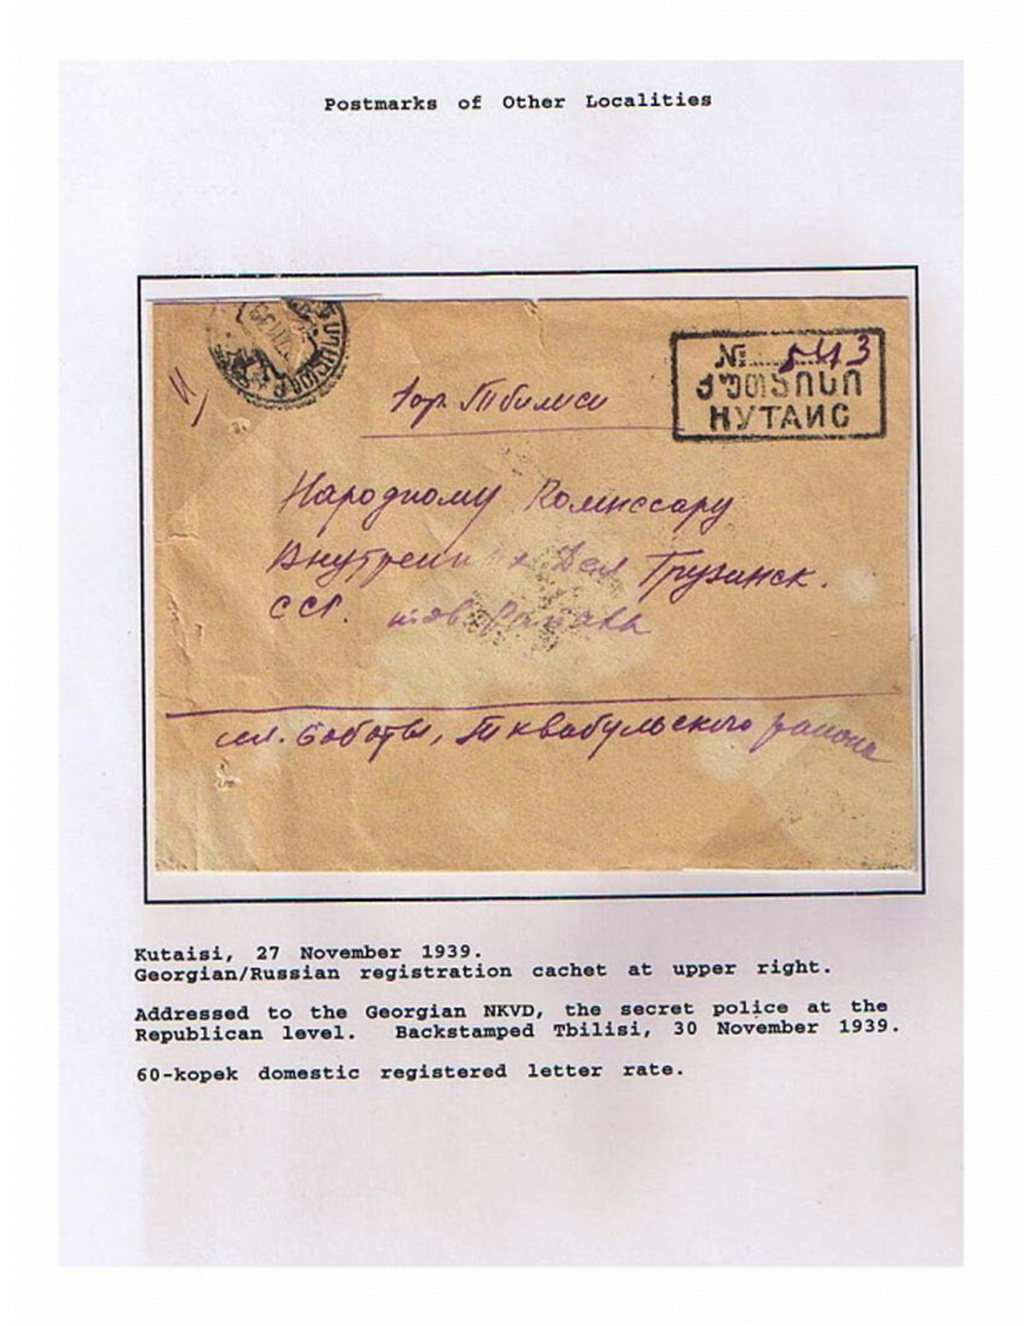 Postmarks of Other Localities
№ 543
ᲥᲣᲗᲐᲘᲡᲘ
КУТАИС
гор. Тбилиси
Народному Комиссару
Внутренних Дел Грузинск.
ССР. тов.
сел. Боботы, Тквабульского района
Kutaisi, 27 November 1939.
Georgian/Russian registration cachet at upper right.
Addressed to the Georgian NKVD, the secret police at the
Republican level. Backstamped Tbilisi, 30 November 1939.
60-kopek domestic registered letter rate.